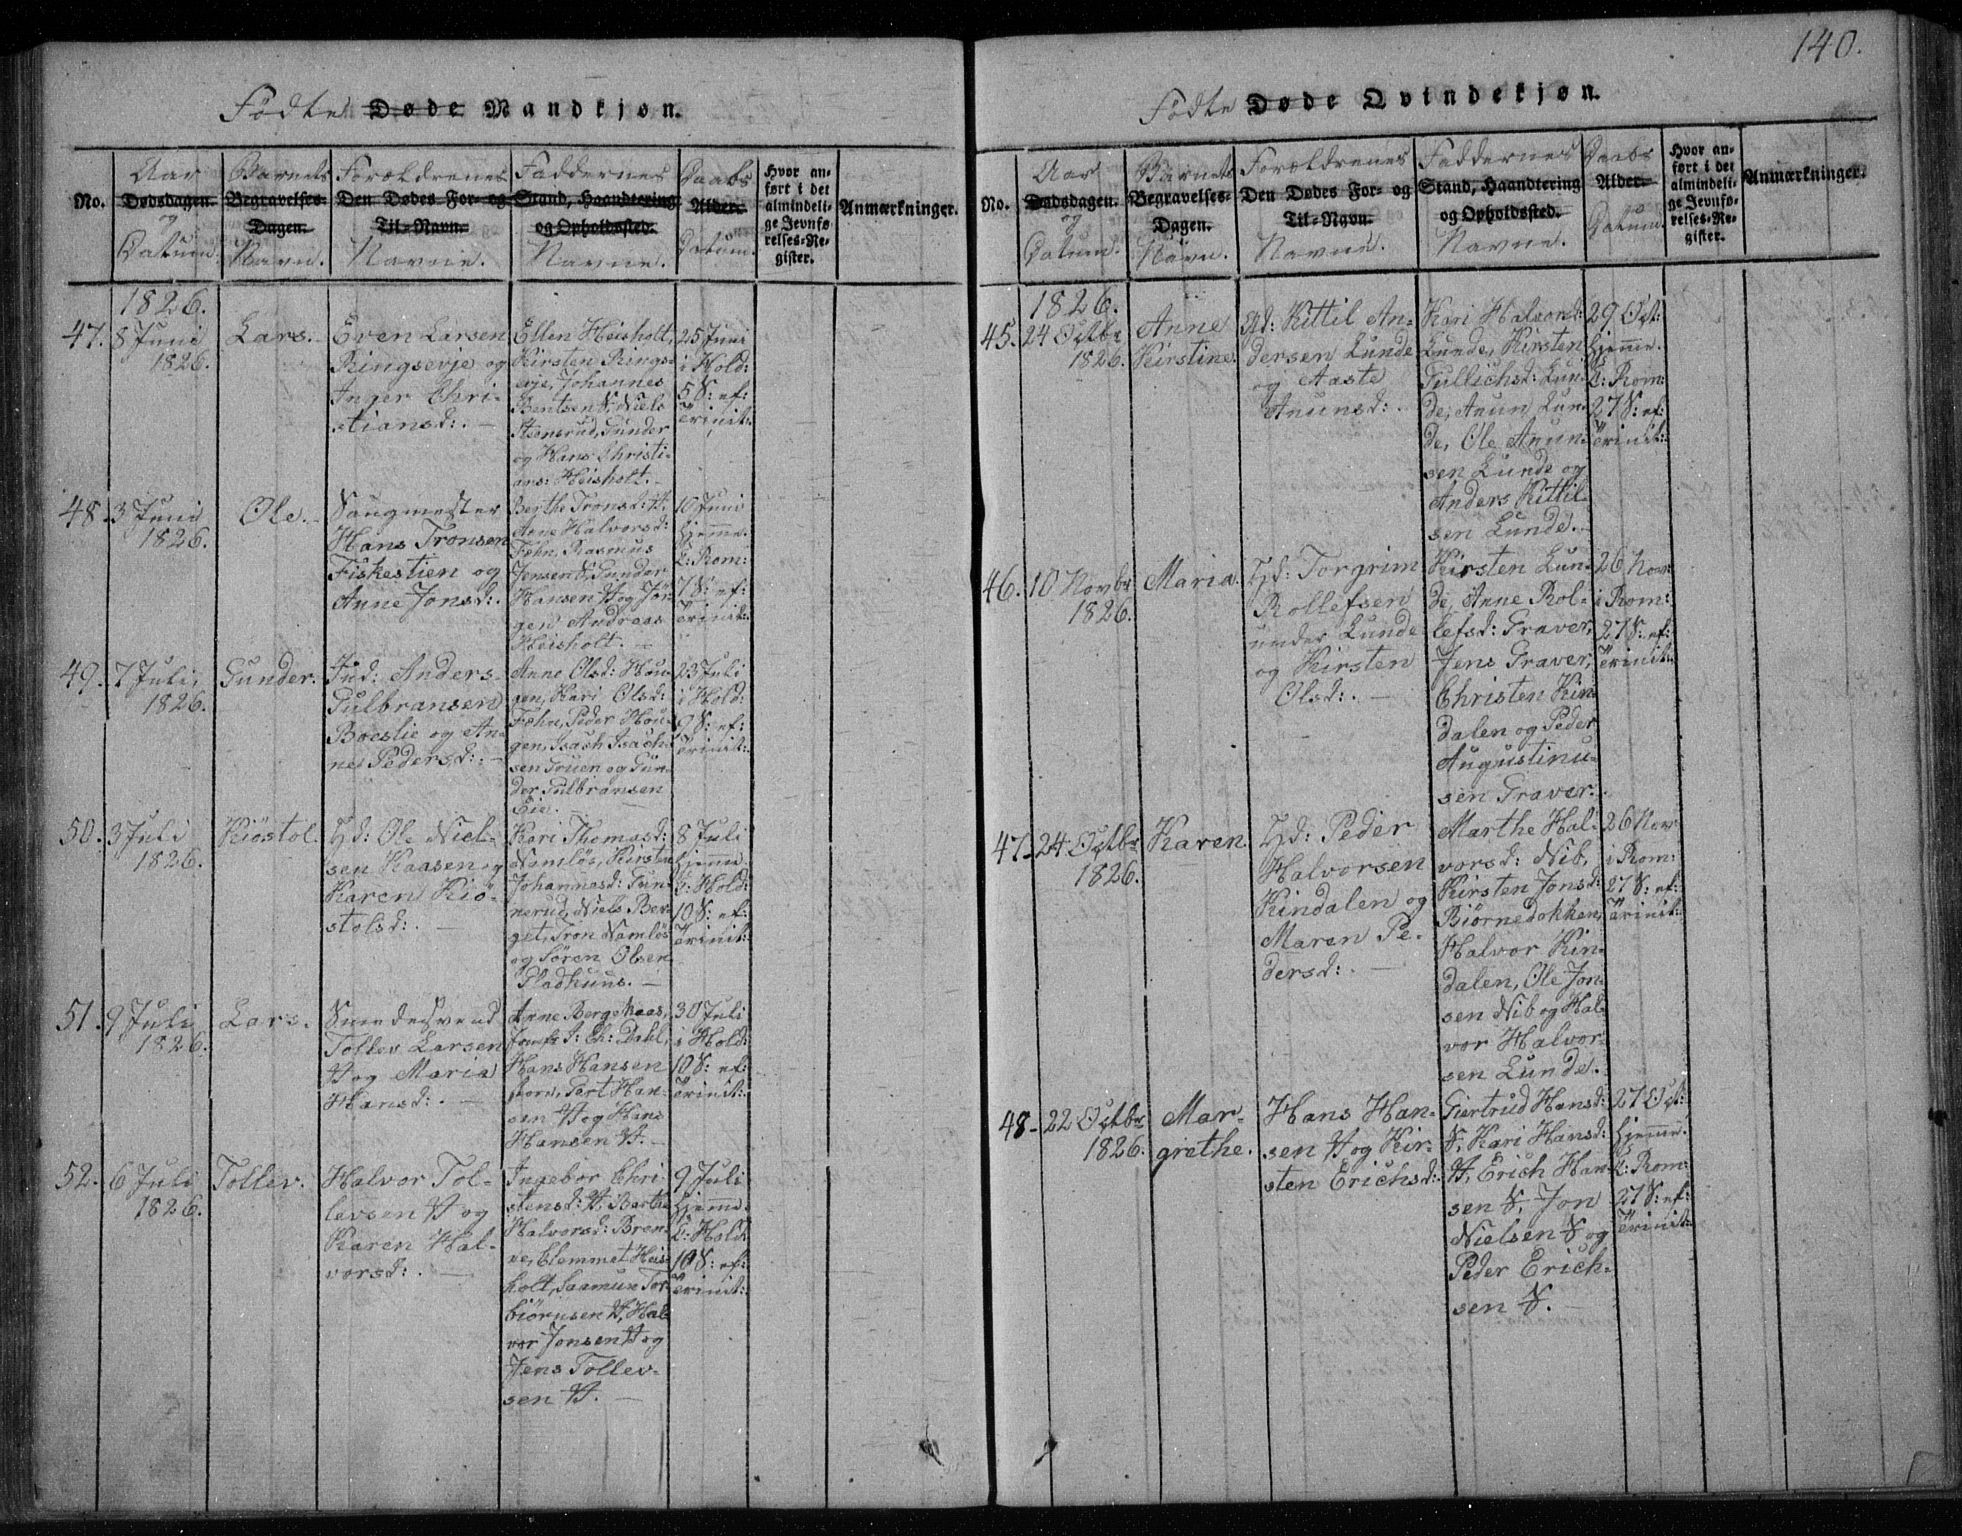 140.
Fødte Døde Mandkjøn.
No.
Aar
Dødsdagen.
og
Datum.
Barnets
Begravelses-
Dagen.
Navn.
Forældrenes
Den Dødes For- og
Til-Navn.
Navne.
Faddernes
Stand, Haandtering
og Opholdssted.
Navne.
Daabs
Alder.
Datum.
Hvor an-
ført i det
almindeli-
ge Jevnfø-
relses-Re-
gister.
Anmærkninger.
1826.
47.
8 Juni
1826.
Lars.
Even Larsen
Ringsevje og
Inger Chri-
stiansd:. —
Ellen Heisholt,
Kirsten Rings-
evje, Johannes
Bentsen S, Niels
Steensrud, Gunder
og Hans Christi-
ans: Heisholt. —
25 Juni
i Hold:
5 S: ef:
Trinit:.
48.
3 Juni
1826.
Ole.
Saugmester
Hans Tronsen
Fiskestien og
Anne Jonsd:.
Berthe Tronsd: H,
Anne Halvorsd:
Føhn, Rasmus
Jensen S, Gunder
Hansen H og Jör-
gen Andreas
Heisholt. —
10 Juni
hjemme.
I: Rom:
7 S: ef:
Trinit:.
49.
7 Juli
1826.
Gunder.
Ind: Anders
Gulbransen
Boeslie og An-
ne Pedersd:. —
Anne Olsd: Hou-
gen, Kari Olsd:
Føhn, Peder Hou-
gen, Isach Isach-
sen Gruen og Gun-
der Gulbransen
Eie. —
23 Juli
i Hold:
9 S: ef:
Trinit:.
50.
3 Juli
1826.
Kiöstol.
Hd: Ole Niel-
sen Kaasen og
Karen Kiö-
stolsd:. —
Kari Thomasd:
Namlös, Kirsten
Johannesd: Gun-
nerud, Niels Ber-
get, Tron Namlös
og Sören Olsen
Pladhuus. —
8 Juli
hjemme
I: Hold:
10 S: ef:
Trinit:.
51.
9 Juli
1826.
Lars.
Smedesvend
Tollev Larsen
H og Maria
Hansd:. —
Anne Bergs Kaas,
Jomfr I: Ch: Dahl,
Hans Hansen
Pert Han-
sen H og Hans
Hansen H. —
30 Juli
i Hold:
10 S: ef:
Trinit:.
52.
6 Juli
1826.
Tollev.
Halvor Tol-
levsen H og
Karen Hal-
vorsd:. —
Ingebor Chri-
stensd: H, Berthe
Halvorsd: Bron-
ve, Clemmet Heis-
holt, Saamun Tor-
biörnsen H, Hal-
vor Jonsen H og
Jens Tollev-
sen H. —
9 Juli
hjemme.
I: Hold:
10 S: ef:
Trinit:.
Fødte Døde Qvindekjøn.
No.
Aar
Dødsdagen.
og
Datum.
Barnets
Begravelses-
Dagen.
Navn.
Forældrenes
Den Dødes For- og
Til-Navn.
Navne.
Faddernes
Stand, Haandtering
og Opholdssted.
Navne.
Daabs
Alder.
Datum.
Hvor an-
ført i det
almindeli-
ge Jevnfø-
relses-Re-
gister.
Anmærkninger.
1826.
45.
24 Octbr
1826.
Anne
Kirstine.
Hd: Kittil An-
dersen Lunde
og Aaste
Anunsd:.
Kari Halvorsd:
Lunde, Kirsten
Gullichsd: Lun-
de, Anun Lun-
de, Ole Anun-
sen Lunde og
Anders Kittil-
sen Lunde. —
29 Oct:
hjemme.
I: Rom:
27 S: ef:
Trinit:.
46.
10 Novbr
1826.
Maria.
Hd: Torgrim
Rollefsen
under Lunde
og Kirsten
Olsd:. —
Kirsten Lun-
de, Anne Rol-
lefsd: Graver,
Jens Graver,
Christen Kin-
dalen og Peder
Augustinu-
sen Graver.
26 Nov
i Rom:
27 S: ef:
Trinit:.
47.
24 Octbr
1826.
Karen.
Hd: Peder
Halvorsen
Kindalen og
Maren Pe-
dersd:. —
Marthe Hal-
vorsd: Nib,
Kirsten Jonsd:
Biörnedokken,
Halvor Kin-
dalen, Ole Jon-
sen Nib og Hal-
vor Halvor-
sen Lunde.
26 Nov
i Rom:
27 S: ef:
Trinit:.
48.
22 Octbr
1826.
Mar-
grethe.
Hans Han-
sen H og Kir-
sten Erichsd:.
Giertrud Hansd:
S, Kari Hansd:
H, Erich Han-
sen S, Jon
Nielsen S og
Peder Erich-
sen S. —
27 Oct:
hjemme.
I: Rom:
27 S: ef:
Trinit:.